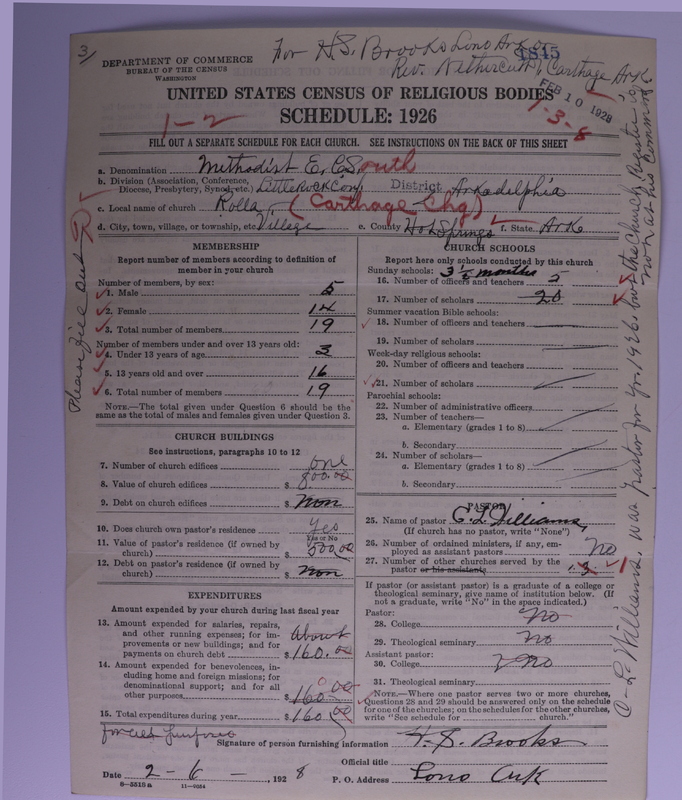 3/
For H.S. Brooks Lono Ark or
1845
DEPARTMENT OF COMMERCE
BUREAU OF THE CENSUS
WASHINGTON
Rev. Nethercutt, Carthage Ark.
FEB 10 1928
UNITED STATES CENSUS OF RELIGIOUS BODIES
1-2
SCHEDULE: 1926
1-3-8
FILL OUT A SEPARATE SCHEDULE FOR EACH CHURCH. SEE INSTRUCTIONS ON THE BACK OF THIS SHEET
a. Denomination Methodist E. C. South
b. Division (Association, Conference, Diocese, Presbytery, Synod, etc.) Little Rock Con, District Arkadelphia
c. Local name of church Rolla, (Carthage Chg)
d. City, town, village, or township, etc. Village e. County Hot Springs f. State Ark
Please Fill out
MEMBERSHIP
Report number of members according to definition of
member in your church
Number of members, by sex:
1. Male 5
2. Female 14
3. Total number of members 19
Number of members under and over 13 years old:
4. Under 13 years of age 3
5. 13 years old and over 16
6. Total number of members 19
NOTE.—The total given under Question 6 should be the
same as the total of males and females given under Question 3.
CHURCH BUILDINGS
See instructions, paragraphs 10 to 12
7. Number of church edifices one
8. Value of church edifices $ 800.00
9. Debt on church edifices $ Non
10. Does church own pastor's residence yes
Yes or No
11. Value of pastor's residence (if owned by
church) $ 500.00
12. Debt on pastor's residence (if owned by
church) $ Non
EXPENDITURES
Amount expended by your church during last fiscal year
13. Amount expended for salaries, repairs,
and other running expenses; for im-
provements or new buildings; and for
payments on church debt About $ 160.00
14. Amount expended for benevolences, in-
cluding home and foreign missions; for
denominational support; and for all
other purposes $ 160.00
15. Total expenditures during year $ 160.00
for all purposes
CHURCH SCHOOLS
Report here only schools conducted by this church
Sunday schools: 3 1/2 months
16. Number of officers and teachers 5
17. Number of scholars 20
Summer vacation Bible schools:
18. Number of officers and teachers
19. Number of scholars
Week-day religious schools:
20. Number of officers and teachers
21. Number of scholars
Parochial schools:
22. Number of administrative officers
23. Number of teachers—
a. Elementary (grades 1 to 8)
b. Secondary
24. Number of scholars—
a. Elementary (grades 1 to 8)
b. Secondary
PASTOR
25. Name of pastor C. L. Williams,
(If church has no pastor, write "None")
26. Number of ordained ministers, if any, em-
ployed as assistant pastors No
27. Number of other churches served by the
pastor or his assistants
If pastor (or assistant pastor) is a graduate of a college or
theological seminary, give name of institution below. (If
not a graduate, write "No" in the space indicated.)
Pastor:
28. College No
29. Theological seminary No
Assistant pastor:
30. College No
31. Theological seminary
NOTE.—Where one pastor serves two or more churches,
Questions 28 and 29 should be answered only on the schedule
for one of the churches; on the schedules for the other churches,
write "See schedule for church."
C. L. Williams, was pastor for yr. 1926, but the Church Register is
not at his command
Signature of person furnishing information H. S. Brooks
Official title
Date 2-6-, 1928
P. O. Address Lono Ark
8-5518a 11-9054